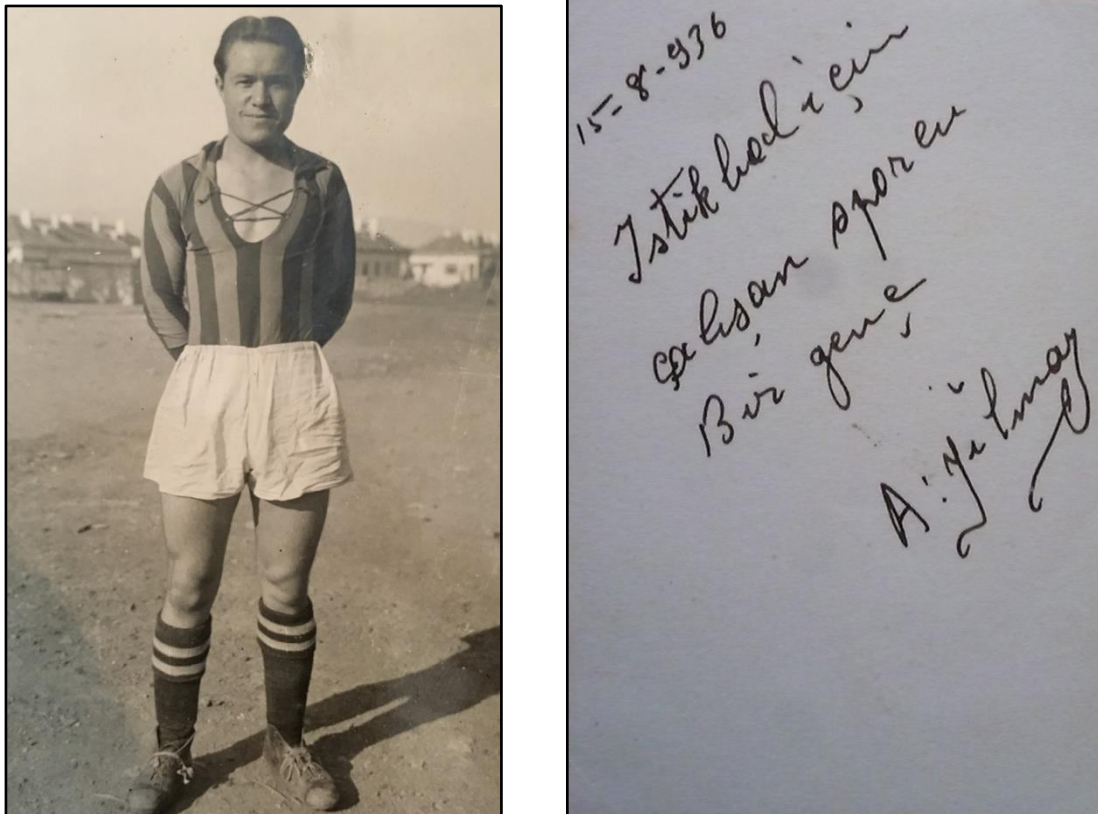 15-8-936
Istikbal için
çalışan sporcu
Bir genç
A. Yılmaz